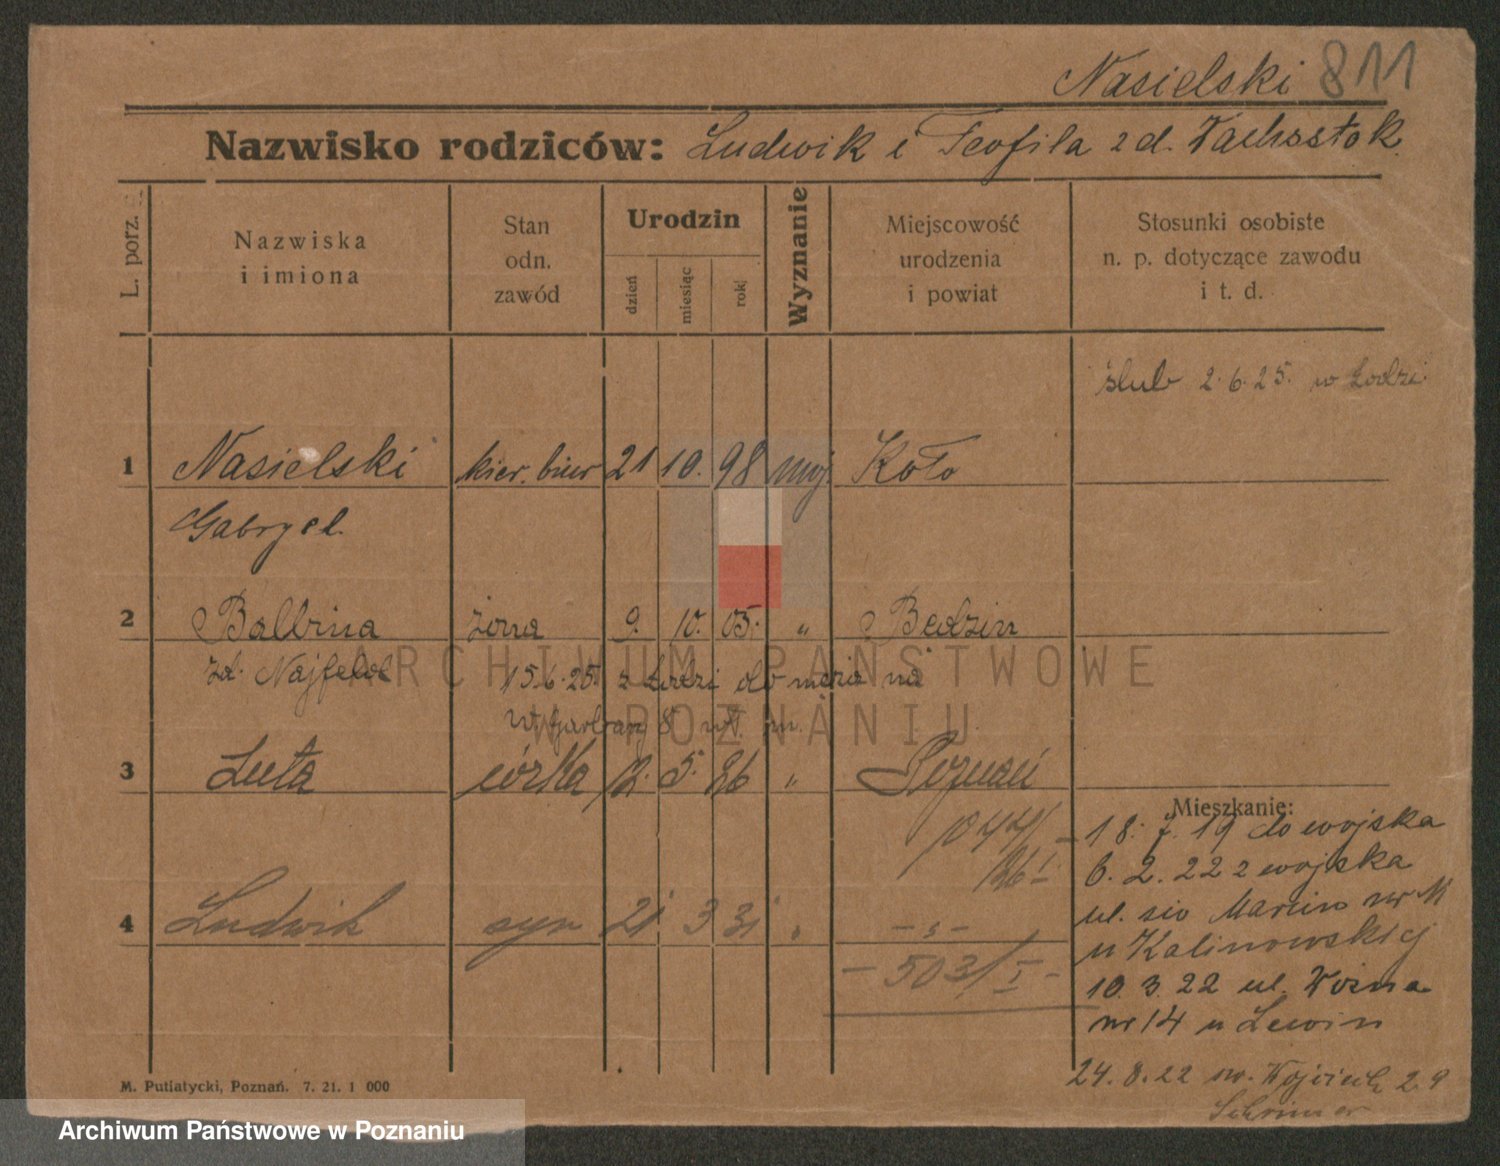 Nasielski 811
Nazwisko rodziców: Ludwik i Teofila z d. Wachsstok
L. porz.
Nazwiska
i imiona
Stan
odn.
zawód
Urodzin
dzień
miesiąc
rok
Wyznanie
Miejscowość
urodzenia
i powiat
Stosunki osobiste
n. p. dotyczące zawodu
i t. d.
ślub 2.6.25. w Łodzi
1 Nasielski kier. biur 21 10. 98 moj. Koło
Gabryel.
2 Balbina żona 9. 10. 05. " Bedzin
zd. Najfeld 15.6.25. z Łodzi do męża na
W. Garbary 8 m.
3 Luta córka 12. 5. 26 " Poznań
Mieszkanie:
1044/
26 I
18. 7. 19 do wojska
6. 2. 22 z wojska
ul. św Marcin nr
u Kalinowskiej
4 Ludwik syn 21 3 31 " - " -
- 503/I -
10. 3. 22 ul. Woźna
nr 14 u Lewin
24. 8. 22 św. Wojciech 29
M. Putiatycki, Poznań. 7. 21. 1 000
ARCHIWUM PAŃSTWOWE
W POZNANIU
Archiwum Państwowe w Poznaniu